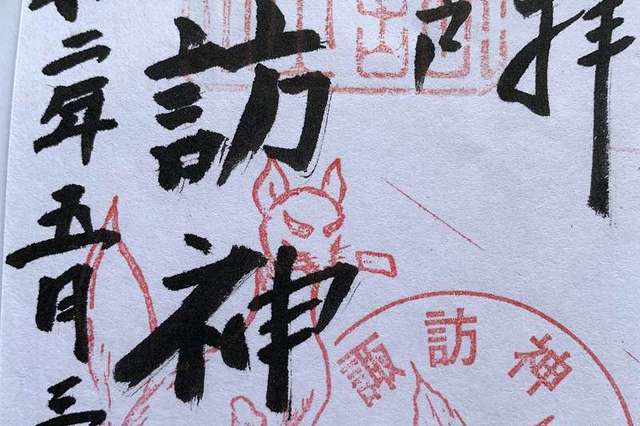 拝
訪神
二年五月三
諏訪神